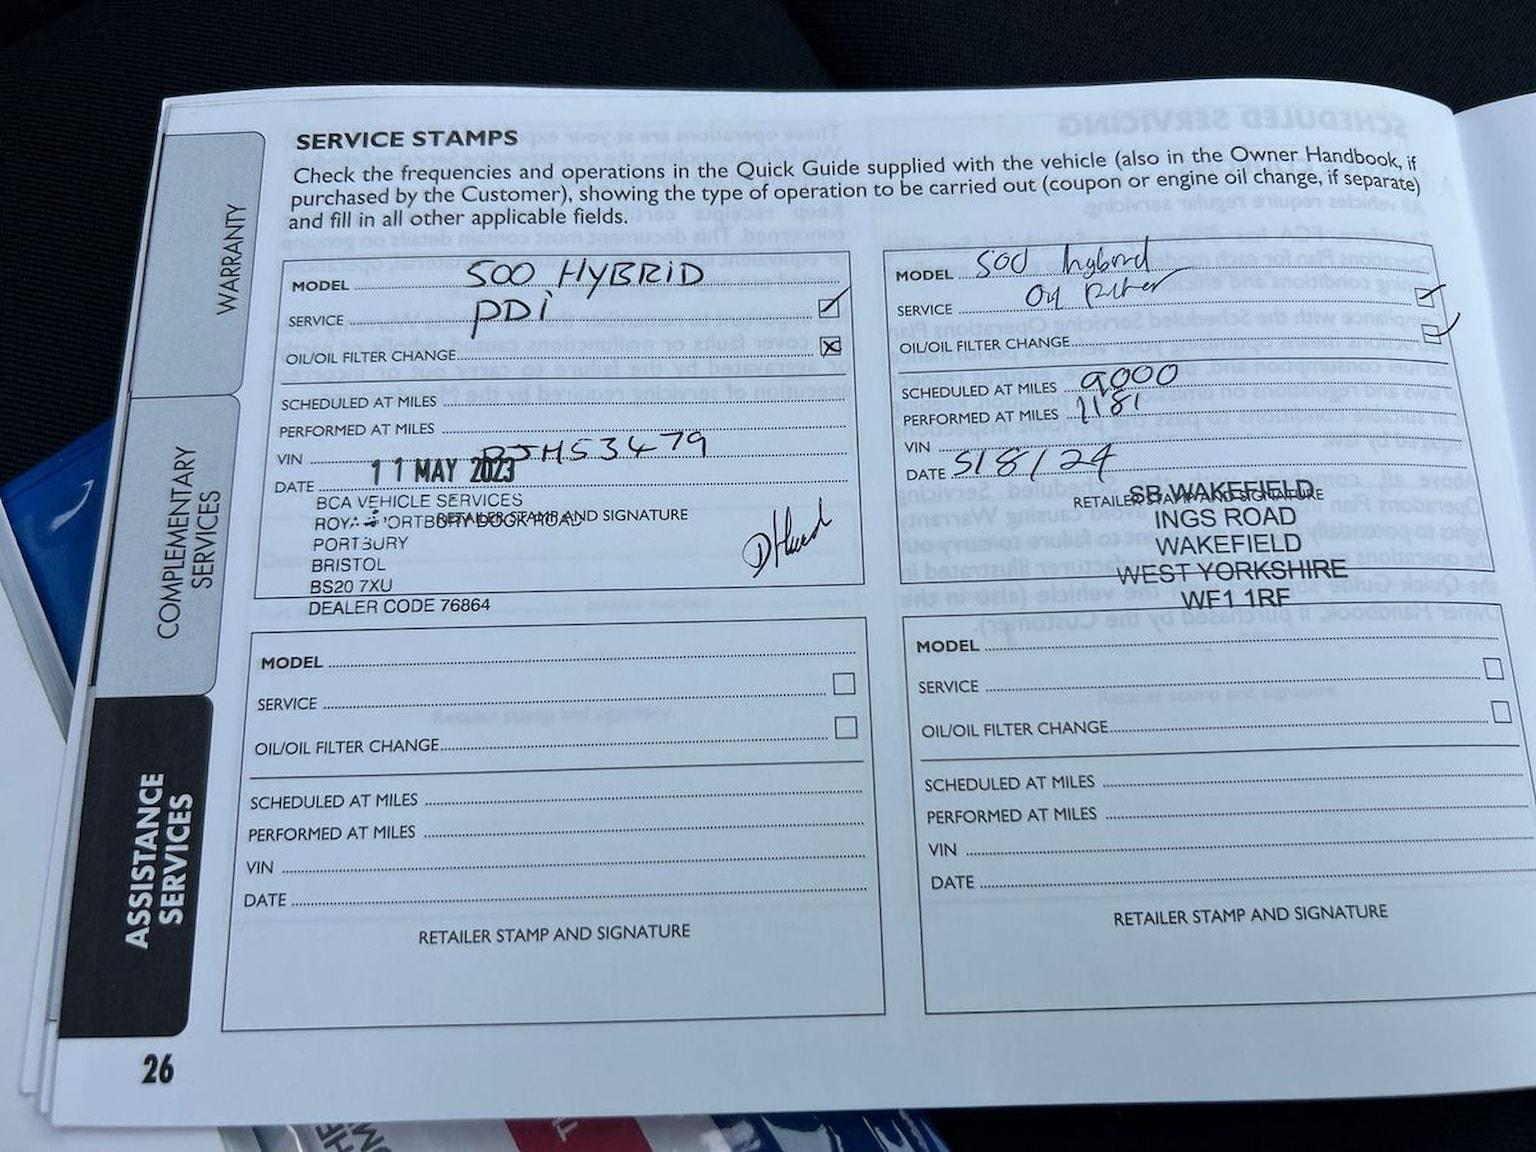 SERVICE STAMPS
Check the frequencies and operations in the Quick Guide supplied with the vehicle (also in the Owner Handbook, if
purchased by the Customer), showing the type of operation to be carried out (coupon or engine oil change, if separate)
and fill in all other applicable fields.
WARRANTY
COMPLEMENTARY
SERVICES
ASSISTANCE
SERVICES
MODEL 500 HYBRID
SERVICE PDi
OIL/OIL FILTER CHANGE
SCHEDULED AT MILES
PERFORMED AT MILES
VIN PJH53479
DATE 11 MAY 2023
RETAILER STAMP AND SIGNATURE
BCA VEHICLE SERVICES
PORTBURY DOCK ROAD
PORTBURY
BRISTOL
BS20 7XU
DEALER CODE 76864
MODEL 500 hybrid
SERVICE Oil filter
OIL/OIL FILTER CHANGE
SCHEDULED AT MILES 9000
PERFORMED AT MILES 1181
VIN
DATE 5/8/24
RETAILER STAMP AND SIGNATURE
SB WAKEFIELD
INGS ROAD
WAKEFIELD
WEST YORKSHIRE
WF1 1RF
MODEL
SERVICE
OIL/OIL FILTER CHANGE
SCHEDULED AT MILES
PERFORMED AT MILES
VIN
DATE
RETAILER STAMP AND SIGNATURE
MODEL
SERVICE
OIL/OIL FILTER CHANGE
SCHEDULED AT MILES
PERFORMED AT MILES
VIN
DATE
RETAILER STAMP AND SIGNATURE
26